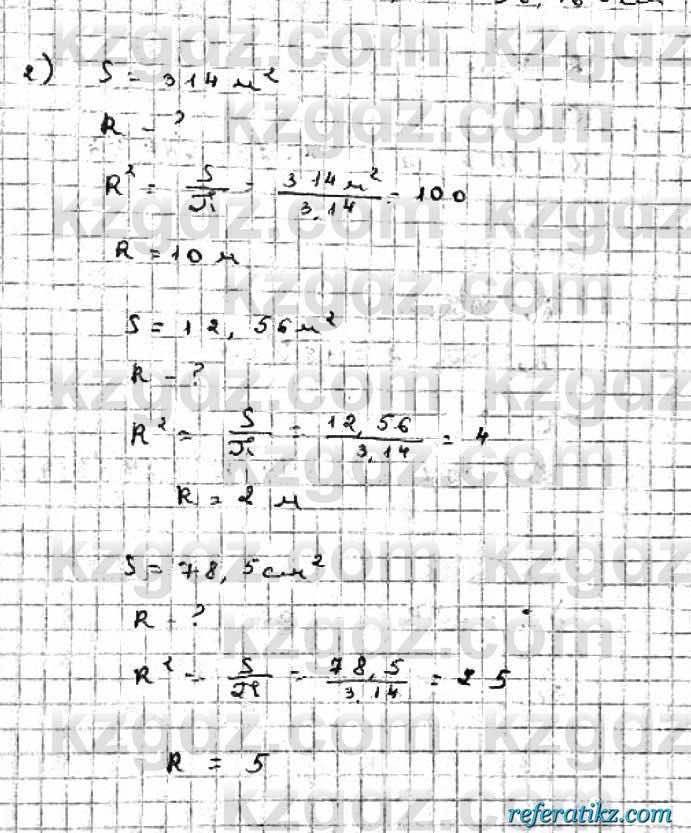 2) S = 314 м²
R - ?
R² = S/π = 314 м²/3,14 = 100
R = 10 м
S = 12,56 м²
R - ?
R² = S/π = 12,56/3,14 = 4
R = 2 м
S = 78,5 см²
R - ?
R² = S/π = 78,5/3,14 = 25
R = 5
kzgdz.com
referatikz.com